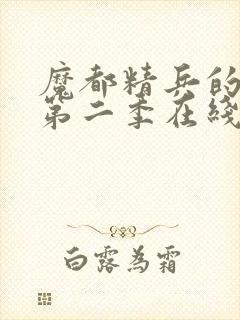 魔都精兵的
第二季在线
白露為霜